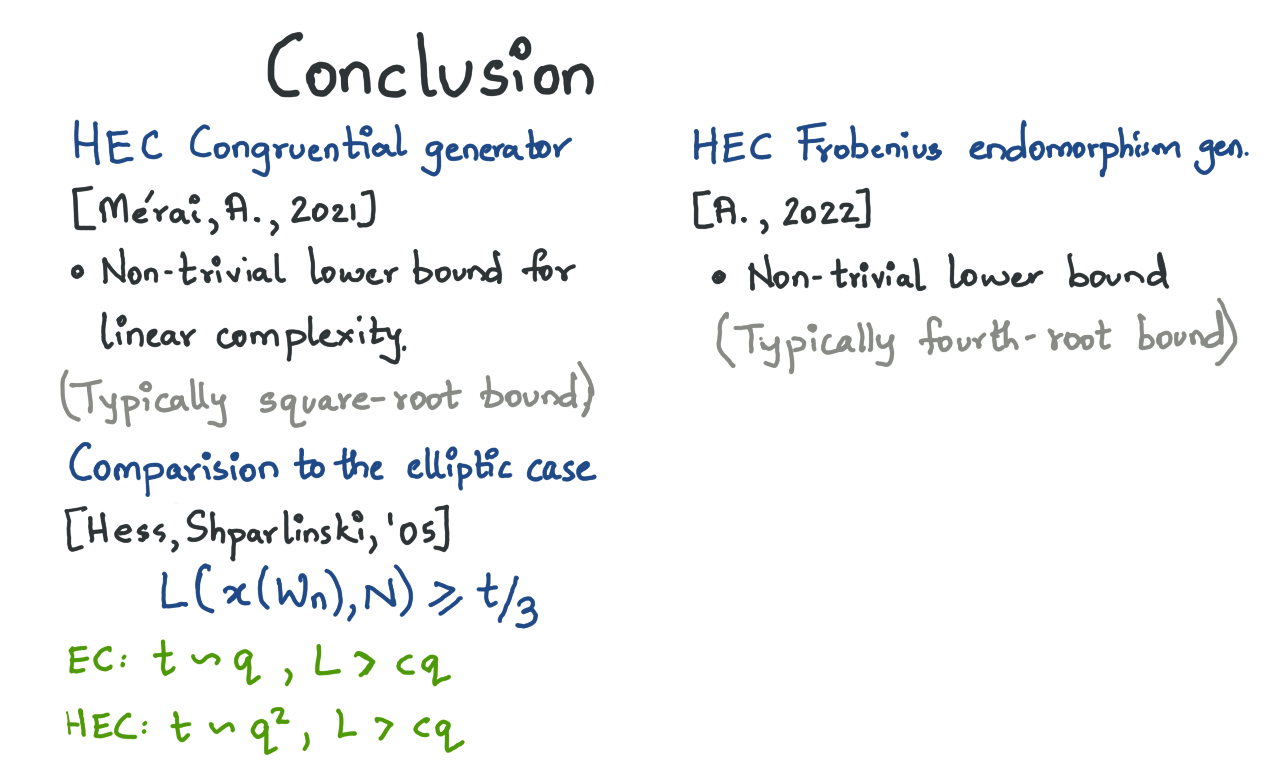 Conclusion
HEC Congruential generator
[Mérai, A., 2021]
• Non-trivial lower bound for
linear complexity.
(Typically square-root bound)
Comparision to the elliptic case
[Hess, Shparlinski, '05]
L(x(Wn), N) ⩾ t/3
EC: t ∽ q , L > cq
HEC: t ∽ q², L > cq
HEC Frobenius endomorphism gen.
[A., 2022]
• Non-trivial lower bound
(Typically fourth-root bound)